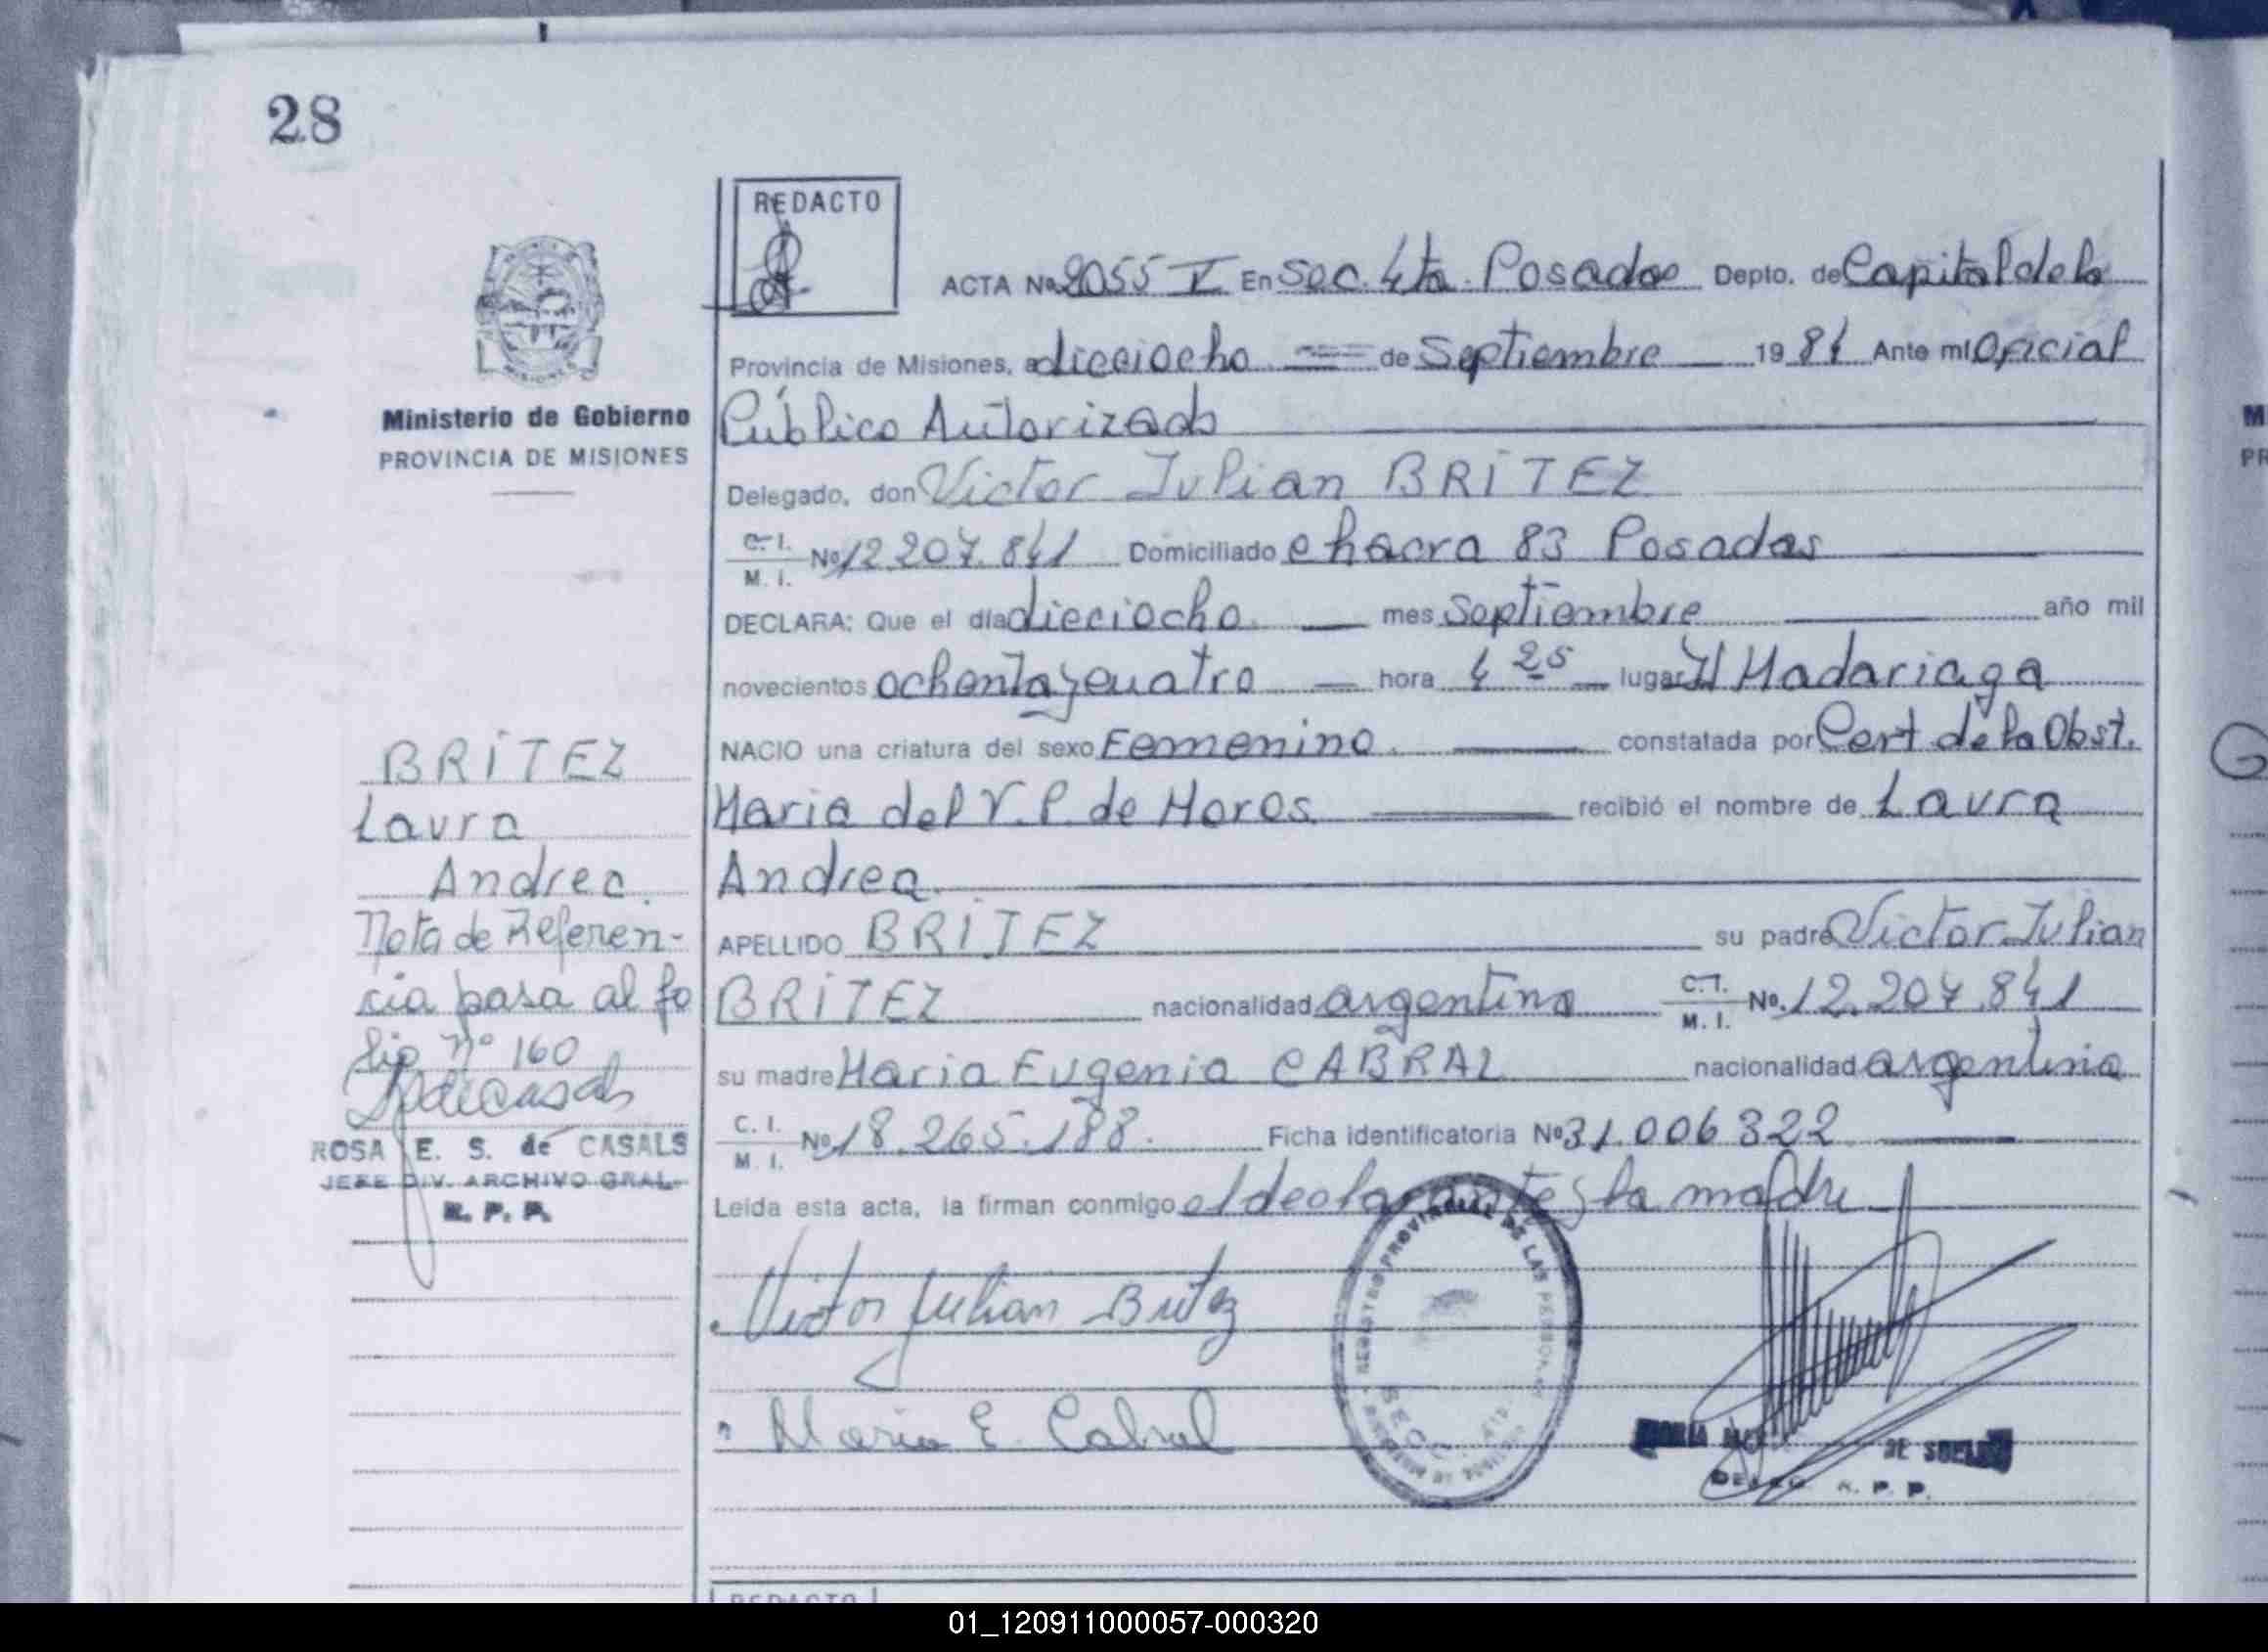 28
REDACTO
ACTA No 2055 I En Sec. 4ta. Posadas Depto. de Capital de la
Provincia de Misiones, a dieciocho de Septiembre 19 84 Ante mi Oficial
Público Autorizado
Ministerio de Gobierno
PROVINCIA DE MISIONES
Delegado, don Victor Julian BRITEZ
C. I. M. I. Nº 12.207.841 Domiciliado chacra 83 Posadas
DECLARA: Que el día dieciocho mes septiembre año mil
novecientos ochenta y cuatro hora 4 25 lugar H Madariaga
NACIO una criatura del sexo Femenino. constatada por Cert de la Obst.
Maria del V. P. de Moros recibió el nombre de Laura
Andrea.
APELLIDO BRITEZ su padre Victor Julian
BRITEZ nacionalidad argentina C. I. M. I. Nº. 12.207.841
su madre Maria Eugenia CABRAL nacionalidad argentina
C. I. M. I. Nº 18.265.188. Ficha identificatoria Nº 31.006322
Leida esta acta, la firman conmigo el declarante y la madre
BRITEZ
Laura
Andrea.
Nota de Referen-
cia pasa al fo
lio Nº 160
ROSA E. S. de CASALS
JEFE DIV. ARCHIVO GRAL.
R. P. P.
Victor Julian Britez
Maria E. Cabral
REGISTRO PROVINCIAL DE LAS PERSONAS
DE
R. P. P.
REDACTO
01_120911000057-000320